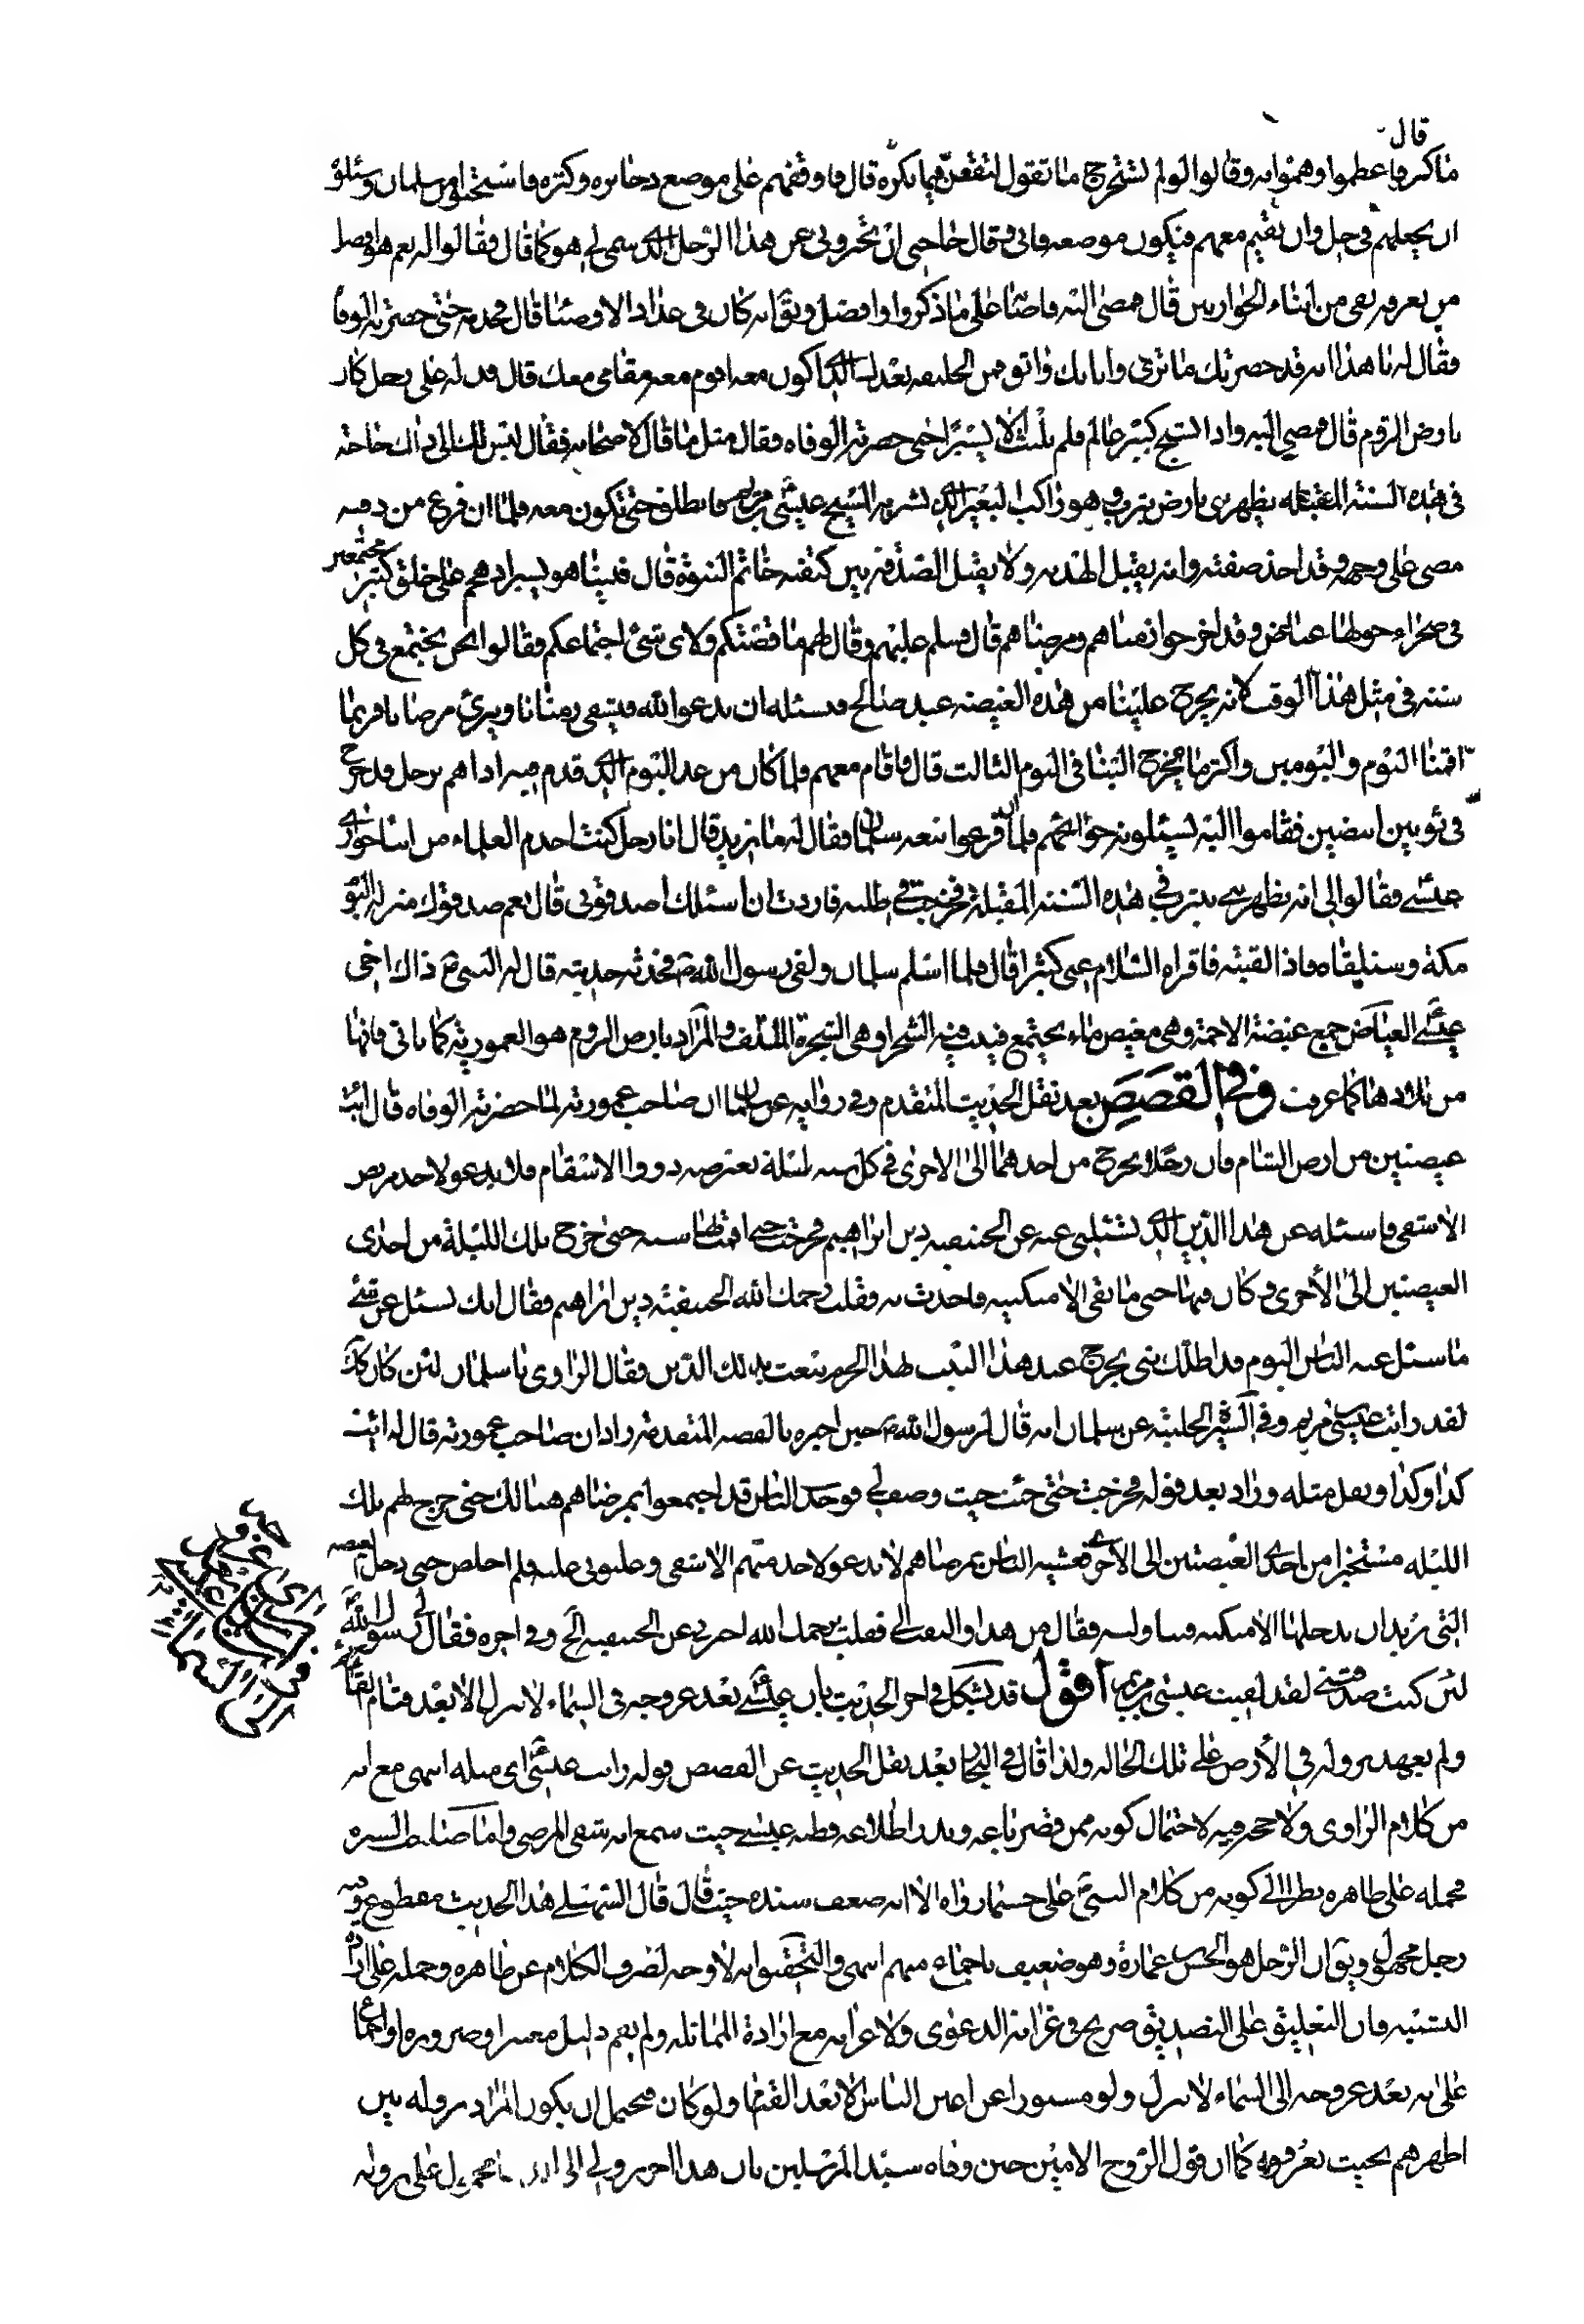 قال
ما كره فاعظموا وهموا به وقالوا لو لم تستخرج ما تقول لتقعن فيما تكره قال فاوقفهم على موضع دخايره وكنزه فاستخفوا من سلمان وسئلوه
ان يجعلهم في حل وان يقيم معهم فيكون موضعه فابى وقال حاجتي ان تخبروني عن هذا الرجل الذي سمى لي اهو كما قال فقالوا له نعم هو افضل
من نعرفه بقى من ابناء الحواريين قال فمضى اليه فاصبنا على ما ذكروا وافضل ويق انه كان في عداد الاوصياء قال فخدمه حتى حضرته الوفاة
فقال له يا هذا انه قد حضر بك ما ترى واباك واثق فمن الخليفة بعدك الذي اكون معه اقوم معه مقامي معك قال فدله على رجل كان
بارض الروم قال فمضى اليه واذا الشيخ كبير عالم فلم يلبث الا يسيرا حتى حضرته الوفاه فقال مثل ما قال لاصحابه فقال ليس لك الى ذلك حاجة
في هذه السنة المقبلة يظهر نبي بارض يثرب وهو راكب البعير الذي بشر به المسيح عيسى بن مريم فانطلق حتى تكون معه فلما ان فرغ من دفنه
مضى على وجهه وقد اخذ صفته وانه يقبل الهدية ولا يقبل الصدقة بين كتفيه خاتم النبوة قال فبينا هو يسير اذ هجم على خلق كثير مجتمعين
في صحراء حولها غياض وقد اخرجوا زمناهم ومرضاهم قال فسلم عليهم وقال لهم ما قصتكم ولاي شئ اجتماعكم فقالوا نحن نجتمع في كل
سنة في مثل هذا الوقت لانه يخرج علينا من هذه الغيضة عبد صالح فنسئله ان يدعو الله فيشفى زمنانا ويبرئ مرضانا فربما
اقمنا اليوم واليومين واكثر ما يخرج الينا في اليوم الثالث قال فاقام معهم فلما كان من غد اليوم الذي قدم فيه اذا هم برجل قد خرج
في ثوبين ابيضين فقاموا اليه يسئلونه حوائجهم فلما ان فرغوا تبعه سلمان فقال له ما تريد قال انا رجل كنت اخدم العلماء من ابناء حواري
عيسى فقالوا لي انه يظهر نبي بيثرب في هذه السنة المقبلة فخرجت في طلبه فاردت ان اسئلك اصدقوني قال نعم صدقوك منزله اليوم
مكة وستلقاه فاذا لقيته فاقراه السلام عني كثيرا قال فلما اسلم سلمان ولقى رسول الله ص فحدثه حديثه قال له النبي ص ذاك اخي
عيسى الغياض جمع غيضة الاجمة وهي مغيض ماء يجتمع فينبت فيه الشجر وهي الشجرة الملتف والمراد بارض الروم هو العمورية كما ياتى فانها
من بلادها كما عرفت وفي القصص بعد نقل الحديث المتقدم وفي رواية عن سلمان ان صاحب عمورية لما حضرته الوفاه قال ائت
غيضتين من ارض الشام فان رجلا يخرج من احدهما الى الاخرى في كل سنة ليلة يعترضه ذووا الاسقام فلا يدعو لاحد مرض
الا شفى فاسئله عن هذا الدين الذي تسئلني عنه عن الحنيفية دين ابراهيم فخرجت حتى اقمت بها سنة حتى خرج تلك الليلة من احدى
الغيضتين الى الاخرى وكان فيها حتى ما بقى الا منكبيه فاخذت به فقلت رحمك الله الحنيفية دين ابراهيم فقال انك تسئل عن شئ
ما سئل عنه الناس اليوم قد اظلك نبي يخرج عند هذا البيت لهذا الحرم يبعث بذلك الدين فقال الراوي يا سلمان لئن كان كك
لقد رايت عيسى بن مريم وفي السيرة الحلبية عن سلمان انه قال لرسول الله ص حين اخبره بالقصة المتقدمة زاد ان صاحب عمورية قال له ائت
كذا وكذا ونقل مثله وزاد بعد قوله فخرجت حتى جئت حيث وصف لي فوجدت الناس قد اجتمعوا بمرضاهم هنالك حتى خرج لهم تلك
الليلة مستخيرا من احدى الغيضتين الى الاخرى فغشيه الناس بمرضاهم لا يدعو لاحد منهم الا شفى وغلبوني عليه فلم اخلص حتى دخل الغيضة
التي يريد ان يدخلها الا منكبه فتناولته فقال من هذا والتفت الي فقلت يرحمك الله اخبرني عن الحنيفية الخ وفي اخره فقال لي رسول الله
لئن كنت صدقتني لقد لقيت عيسى بن مريم اقول قد يشكل في اخر الحديث بان عيسى بعد عروجه في السماء لا ينزل الا بعد قيام القائم
ولم يعهد نزوله في الارض على تلك الحالة ولذا قال في البحار بعد نقل الحديث عن القصص قوله رايت عيسى اى مثله انتهى مع انه
من كلام الراوي ولا حجة فيه لاحتمال كونه ممن قصر باعه وندر اطلاعه فظنه عيسى حيث سمع انه شفى المرضى واما صاحب السيرة
فحمله على ظاهره نظرا الى كونه من كلام النبي ص على حسبما رواه الا انه ضعف سنده حيث قال قال السهيلي هذا الحديث مقطوع وفيه
رجل مجهول ويق ان الرجل هو الحسن بن عمارة وهو ضعيف باجماع منهم انتهى والتحقيق انه لا وجه لصرف الكلام عن ظاهره وحمله على ارادة
التشبيه فان التعليق على التصديق صريح في غرابة الدعوى ولا غرابة مع ارادة المماثله ولم يقم دليل معتبر او ضرورة او اجماع
على انه بعد عروجه الى السماء لا ينزل ولو مستورا عن اعين الناس الا بعد القائم ولو كان فيحتمل ان يكون المراد نزوله بين
اظهرهم بحيث يعرفونه كما ان قول الروح الامين حين وفاه سيد المرسلين بان هذا اخر نزولي الى الدنيا محمول على نزوله